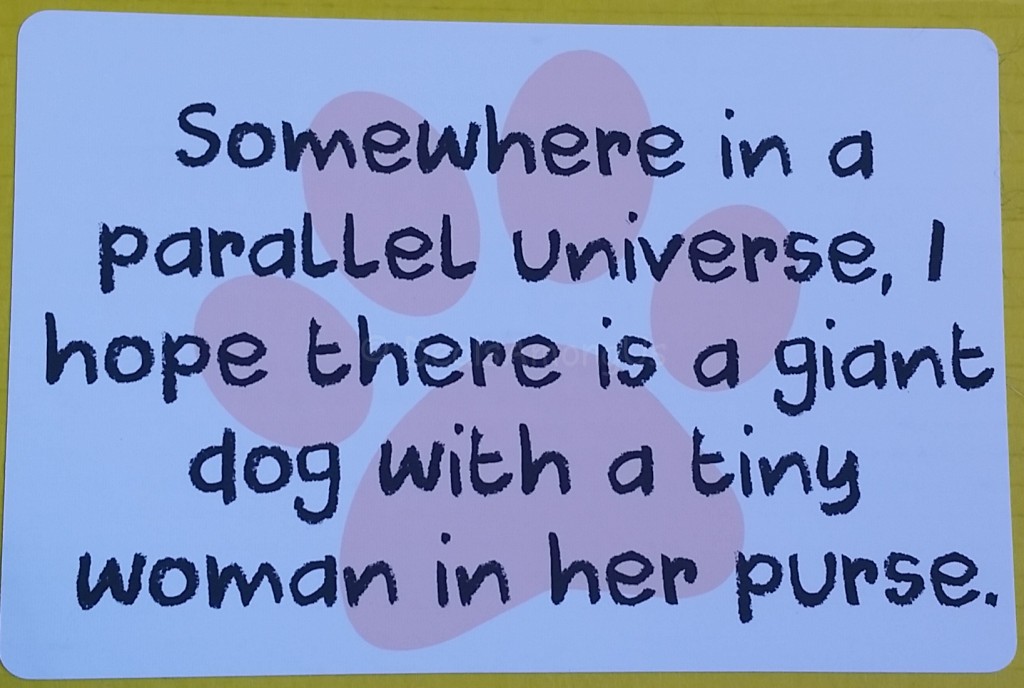 Somewhere in a
parallel universe, I
hope there is a giant
dog with a tiny
woman in her purse.